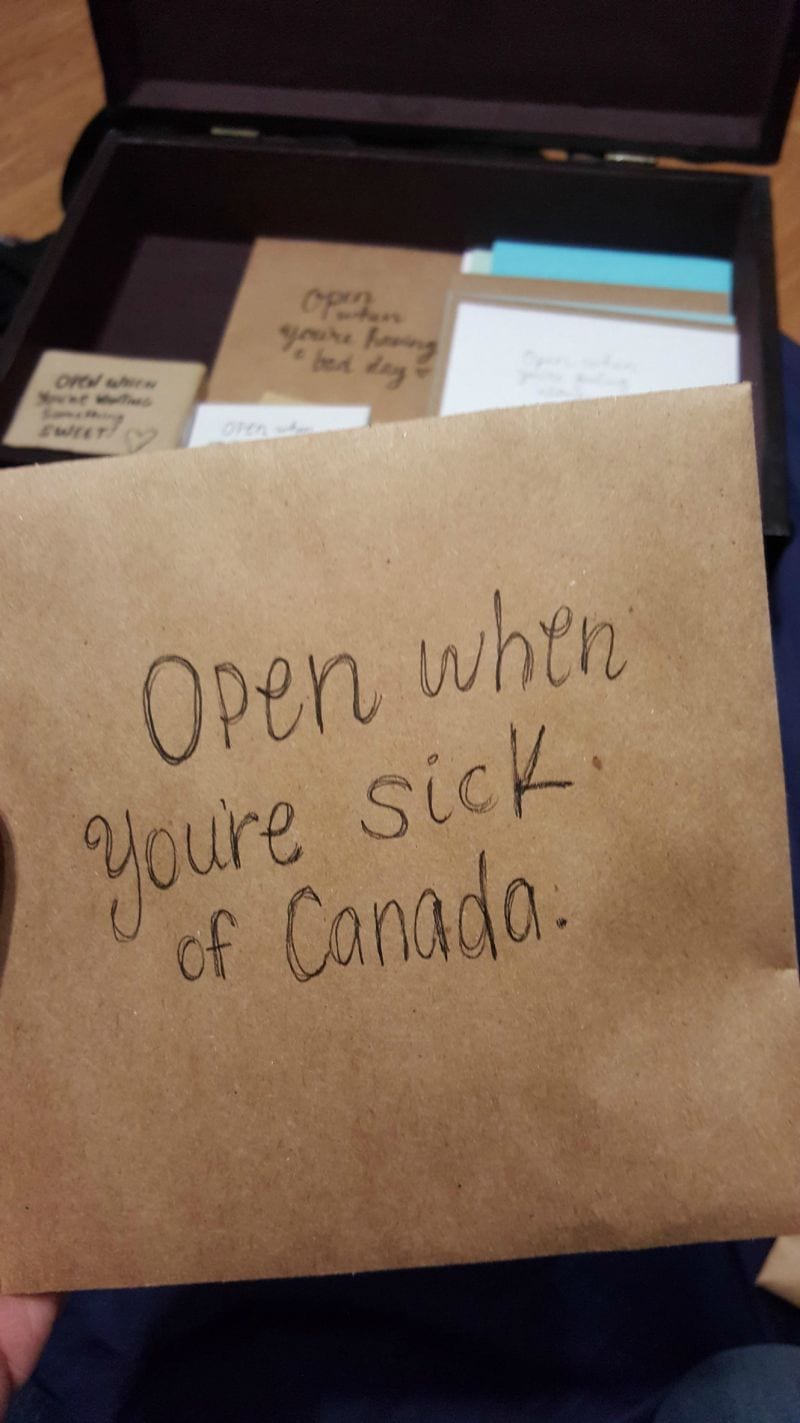 Open
when
you're having
a bad day
OPEN WHEN
you're wanting
something
SWEET!
OPEN when
Open when
you're feeling
Open when
you're sick
of Canada.